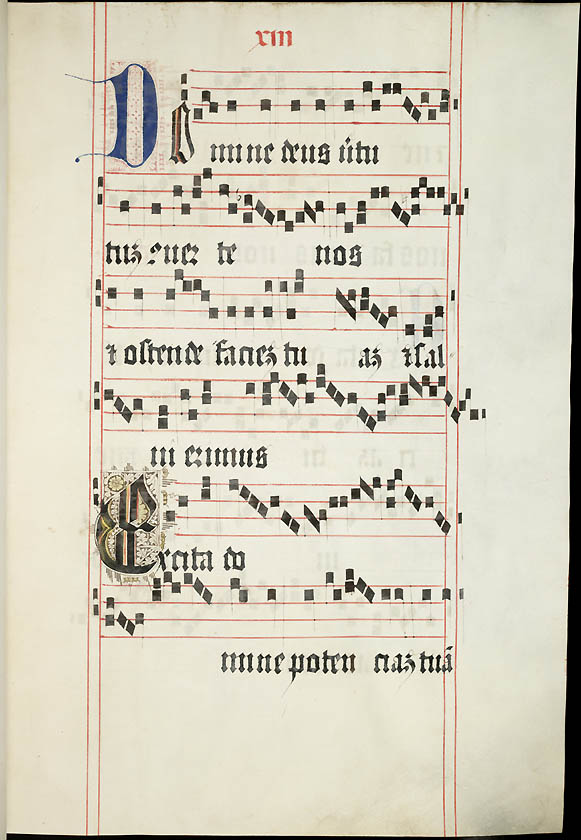 xiii
Do mine deus ūtu
tuꝫ ⁊uer te nos
⁊ oſtende faciеꝫ tu aꝫ ⁊ſal
ui erimus
Excita do
mine poten ciaꝫ tuā